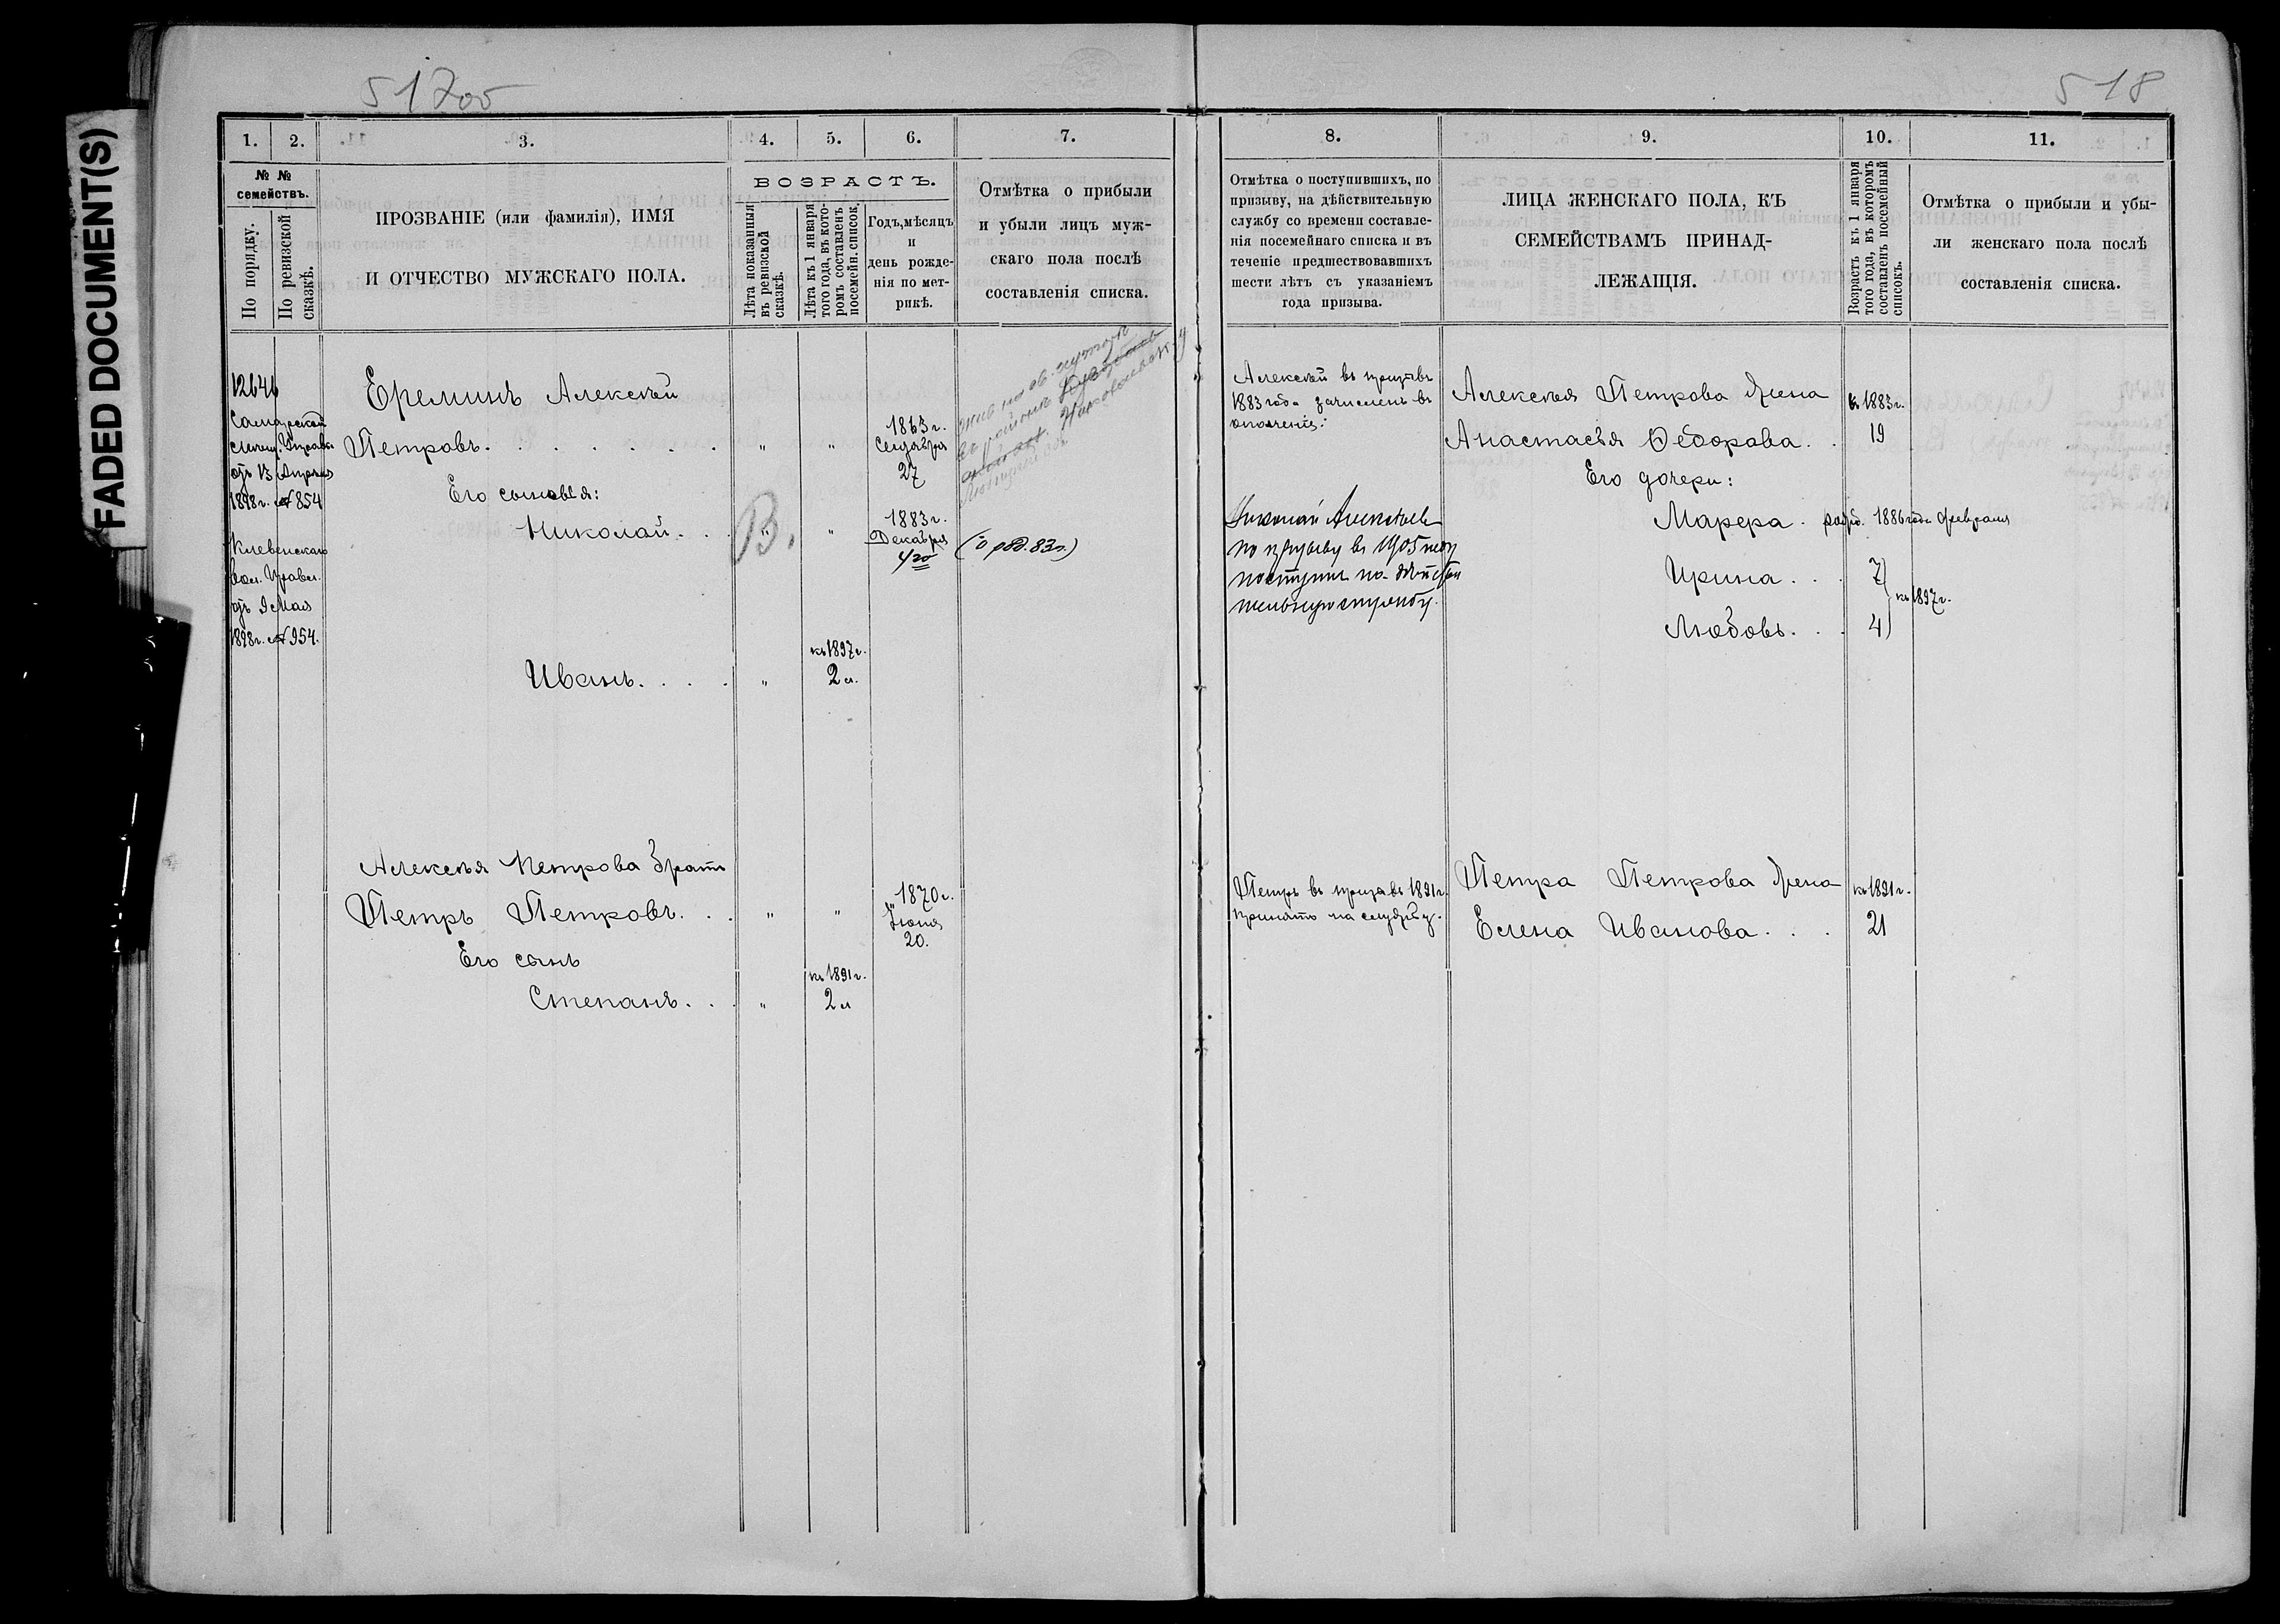 FADED DOCUMENT(S)
517об
518
1.
2.
3.
4.
5.
6.
7.
№ №
семействъ.
По порядку.
По ревизской
сказкѣ.
ПРОЗВАНІЕ (или фамилія), ИМЯ
И ОТЧЕСТВО МУЖСКАГО ПОЛА.
ВОЗРАСТЪ.
Лѣта показанныя
въ ревизской
сказкѣ.
Лѣта къ 1 января
того года, въ кото-
ромъ составленъ
посемейн. список.
Годъ, мѣсяцъ
и
день рожде-
нія по мет-
рикѣ.
Отмѣтка о прибыли
и убыли лицъ муж-
скаго пола послѣ
составленія списка.
8.
9.
10.
11.
Отмѣтка о поступившихъ, по
призыву, на дѣйствительную
службу со времени составле-
нія посемейнаго списка и въ
теченіе предшествовавшихъ
шести лѣтъ съ указаніемъ
года призыва.
ЛИЦА ЖЕНСКАГО ПОЛА, КЪ
СЕМЕЙСТВАМЪ ПРИНАД-
ЛЕЖАЩІЯ.
Возрастъ къ 1 января
того года, въ которомъ
составленъ посемейный
списокъ.
Отмѣтка о прибыли и убы-
ли женскаго пола послѣ
составленія списка.
12646
Самарской
Управы
отъ 13 Апрѣля
1898г. № 854
Клевенскаго
Вол. Правл.
отъ 9 Мая
1898г. № 954.
Ереминъ Алексѣй
Петровъ. . . . . . . " "
1863г.
Сентября
27
Его сыновья:
Николай. . . В. " "
1883г.
Декабря
4го
(о род. 83г.)
Иванъ. . . . "
къ 1897г.
2 л.
Алексѣя Петрова братъ
Петръ Петровъ. . . " "
1870г.
Іюня
20.
Его сынъ
Степанъ. . . "
къ 1891г.
2 л
Алексѣй въ призывъ
1883 года зачисленъ въ
ополченіе.
Николай Алексѣевъ
по призыву въ 1905 году
поступилъ на дѣйстви
тельную службу.
Петръ въ призывъ 1891г.
принятъ на службу.
Алексѣя Петрова жена
Анастасья Ѳедорова. .
къ 1883г.
19
Его дочери:
Марфа . рожд. 1886 года Февраля
Ирина. . . 7
Любовь. . . 4
къ 1897г.
Петра Петрова жена
Елена Иванова. . .
къ 1891г.
21